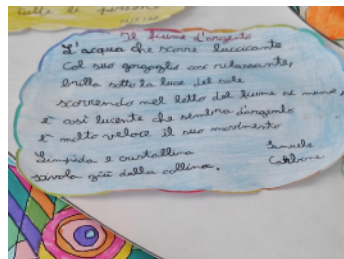 tutte le persone
Il fiume d'argento
L'acqua che scorre luccicante
Col suo gorgoglio così rilassante,
brilla sotto la luce del sole
scorrendo nel letto del fiume si muove
è così lucente che sembra d'argento
è molto veloce il suo movimento
Limpida e cristallina
scivola giù dalla collina.
Samuele
Carbone